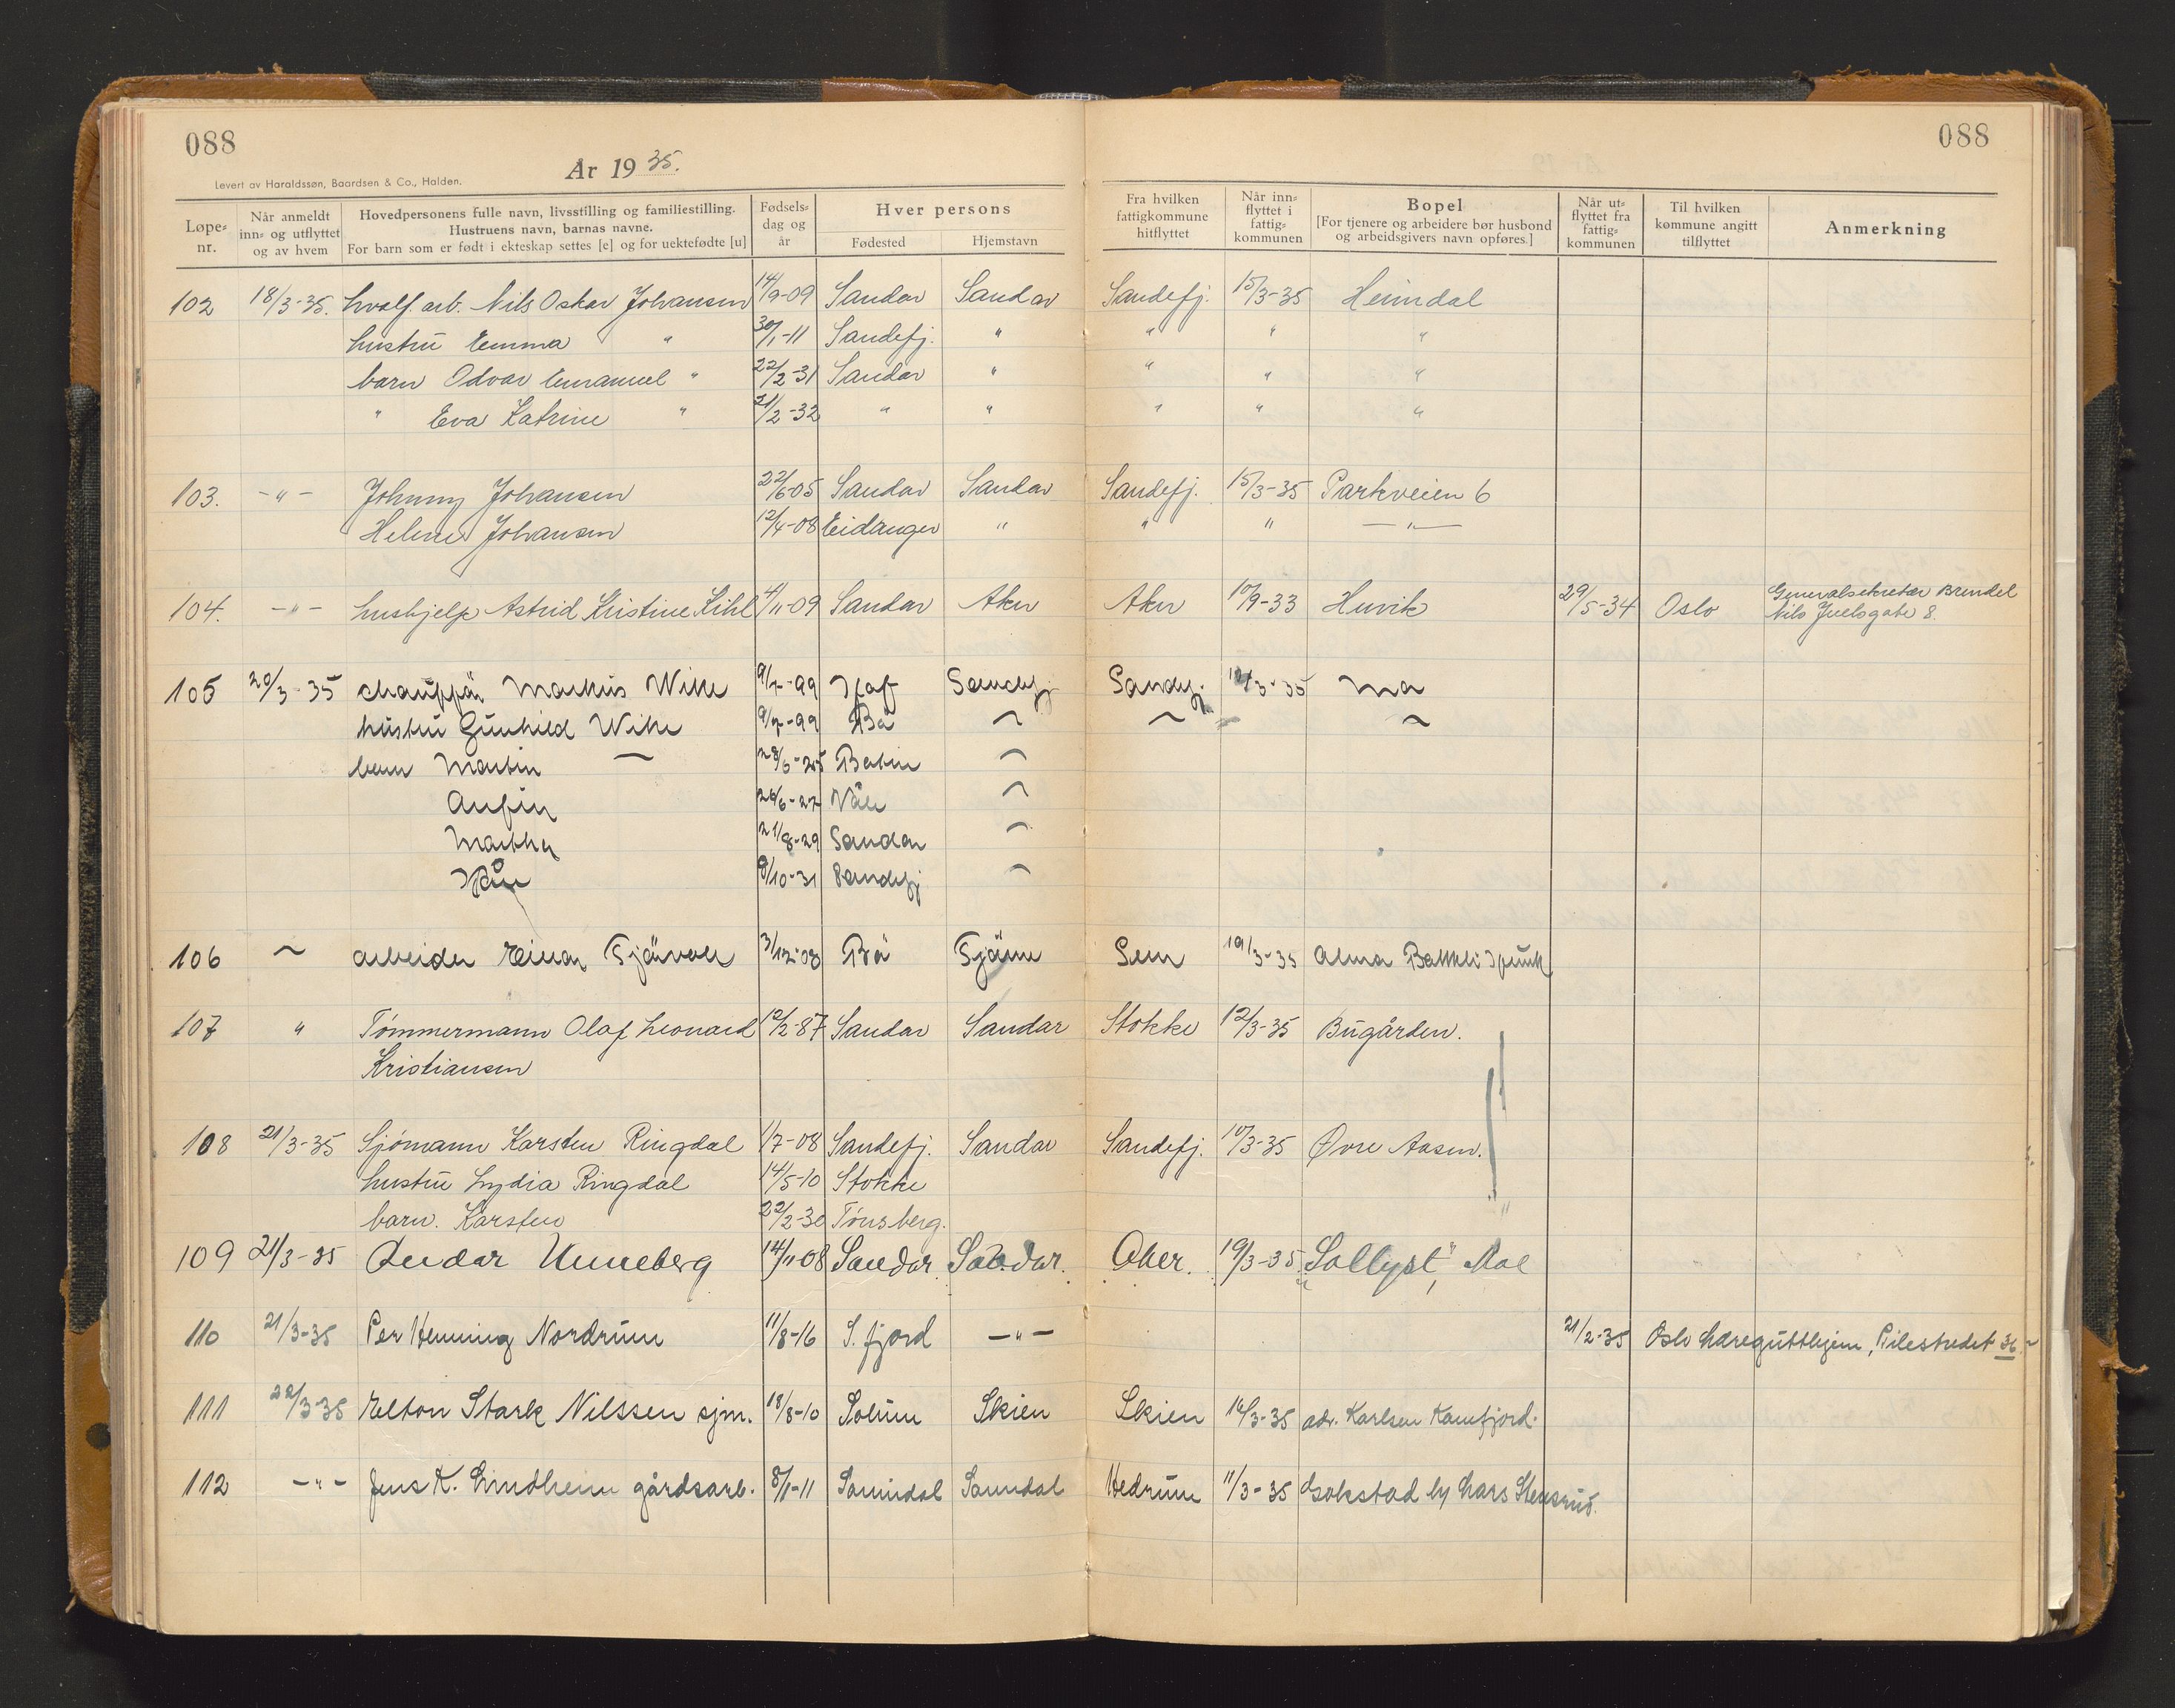 088
088
År 1935.
Levert av Haraldssøn, Baardsen & Co., Halden.
Løpe-nr. | Når anmeldt inn- og utflyttet og av hvem | Hovedpersonens fulle navn, livsstilling og familiestilling. Hustruens navn, barnas navne. For barn som er født i ekteskap settes [e] og for uektefødte [u] | Fødsels-dag og år | Hver persons Fødested | Hjemstavn | Fra hvilken fattigkommune hitflyttet | Når inn-flyttet i fattig-kommunen | Bopel [For tjenere og arbeidere bør husbond og arbeidsgivers navn opføres.] | Når ut-flyttet fra fattig-kommunen | Til hvilken kommune angitt tilflyttet | Anmerkning
102 18/3-35. hvalf. arb. Nils Oskar Johansen 14/9-09 Sandar Sandar Sandefj. 15/3-35 Heimdal
hustru Emma " 30/1-11 Sandefj. " " " "
barn Odvar Emanuel " 22/2-31 Sandar " " " "
" Eva Katrine " 21/2-32 " " " " "
103. -"- Johnny Johansen 22/6-05 Sandar Sandar Sandefj. 15/3-35 Parkveien 6
Helene Johansen 12/4-08 Eidanger " " " -"-
104. -"- hushjelp Astrid Kristine Kihl 4/11-09 Sandar Aker Aker 10/9-33 Huvik 29/5-34 Oslo Generalsekretær Brendel
Nils Juelsgate 8.
105 20/3-35 chauffør Markus Wike 9/7-99 Sandefj. Sandefj. 3-35
hustru Gunhild Wike 9/7-99 Bö
barn Martin 25
27
Martha 21/8-29 Sandar
9/10-31 Sandefj
106 arbeider Einar 3/12-08 Bö Tjöme Sem 19/3-35 Alma
107 " Tømmermann Olaf Leonard 12/2-87 Sandar Sandar Stokke 12/3-35 Bugården.
Kristiansen
108 21/3-35 Sjømann Karsten Ringdal 1/7-08 Sandefj. Sandar Sandefj. 10/3-35 Øvre Aasen.
hustru Lydia Ringdal 14/5-10 Stokke
barn. Karsten 22/2-30 Tønsberg.
109 21/3-35 Reidar Unneberg 14/11-08 Sandar. Sandar. Aker. 19/3-35 "Sollyst"
110 21/3-35 Per Henning Nordrum 11/8-16 S. fjord -"- 21/2-35 Oslo Læregutthjem, Pilestredet 36.
111 22/3-35 Elton Stark Nilssen sjm. 18/8-10 Solum Skien Skien 14/3-35 adr. Karlsen Kamfjord.
112 -"- Jens K. Lindheim gårdsarb. 8/1-11 Sannidal Sannidal Hedrum 11/3-35 Gokstad hj Lars Stensrud.